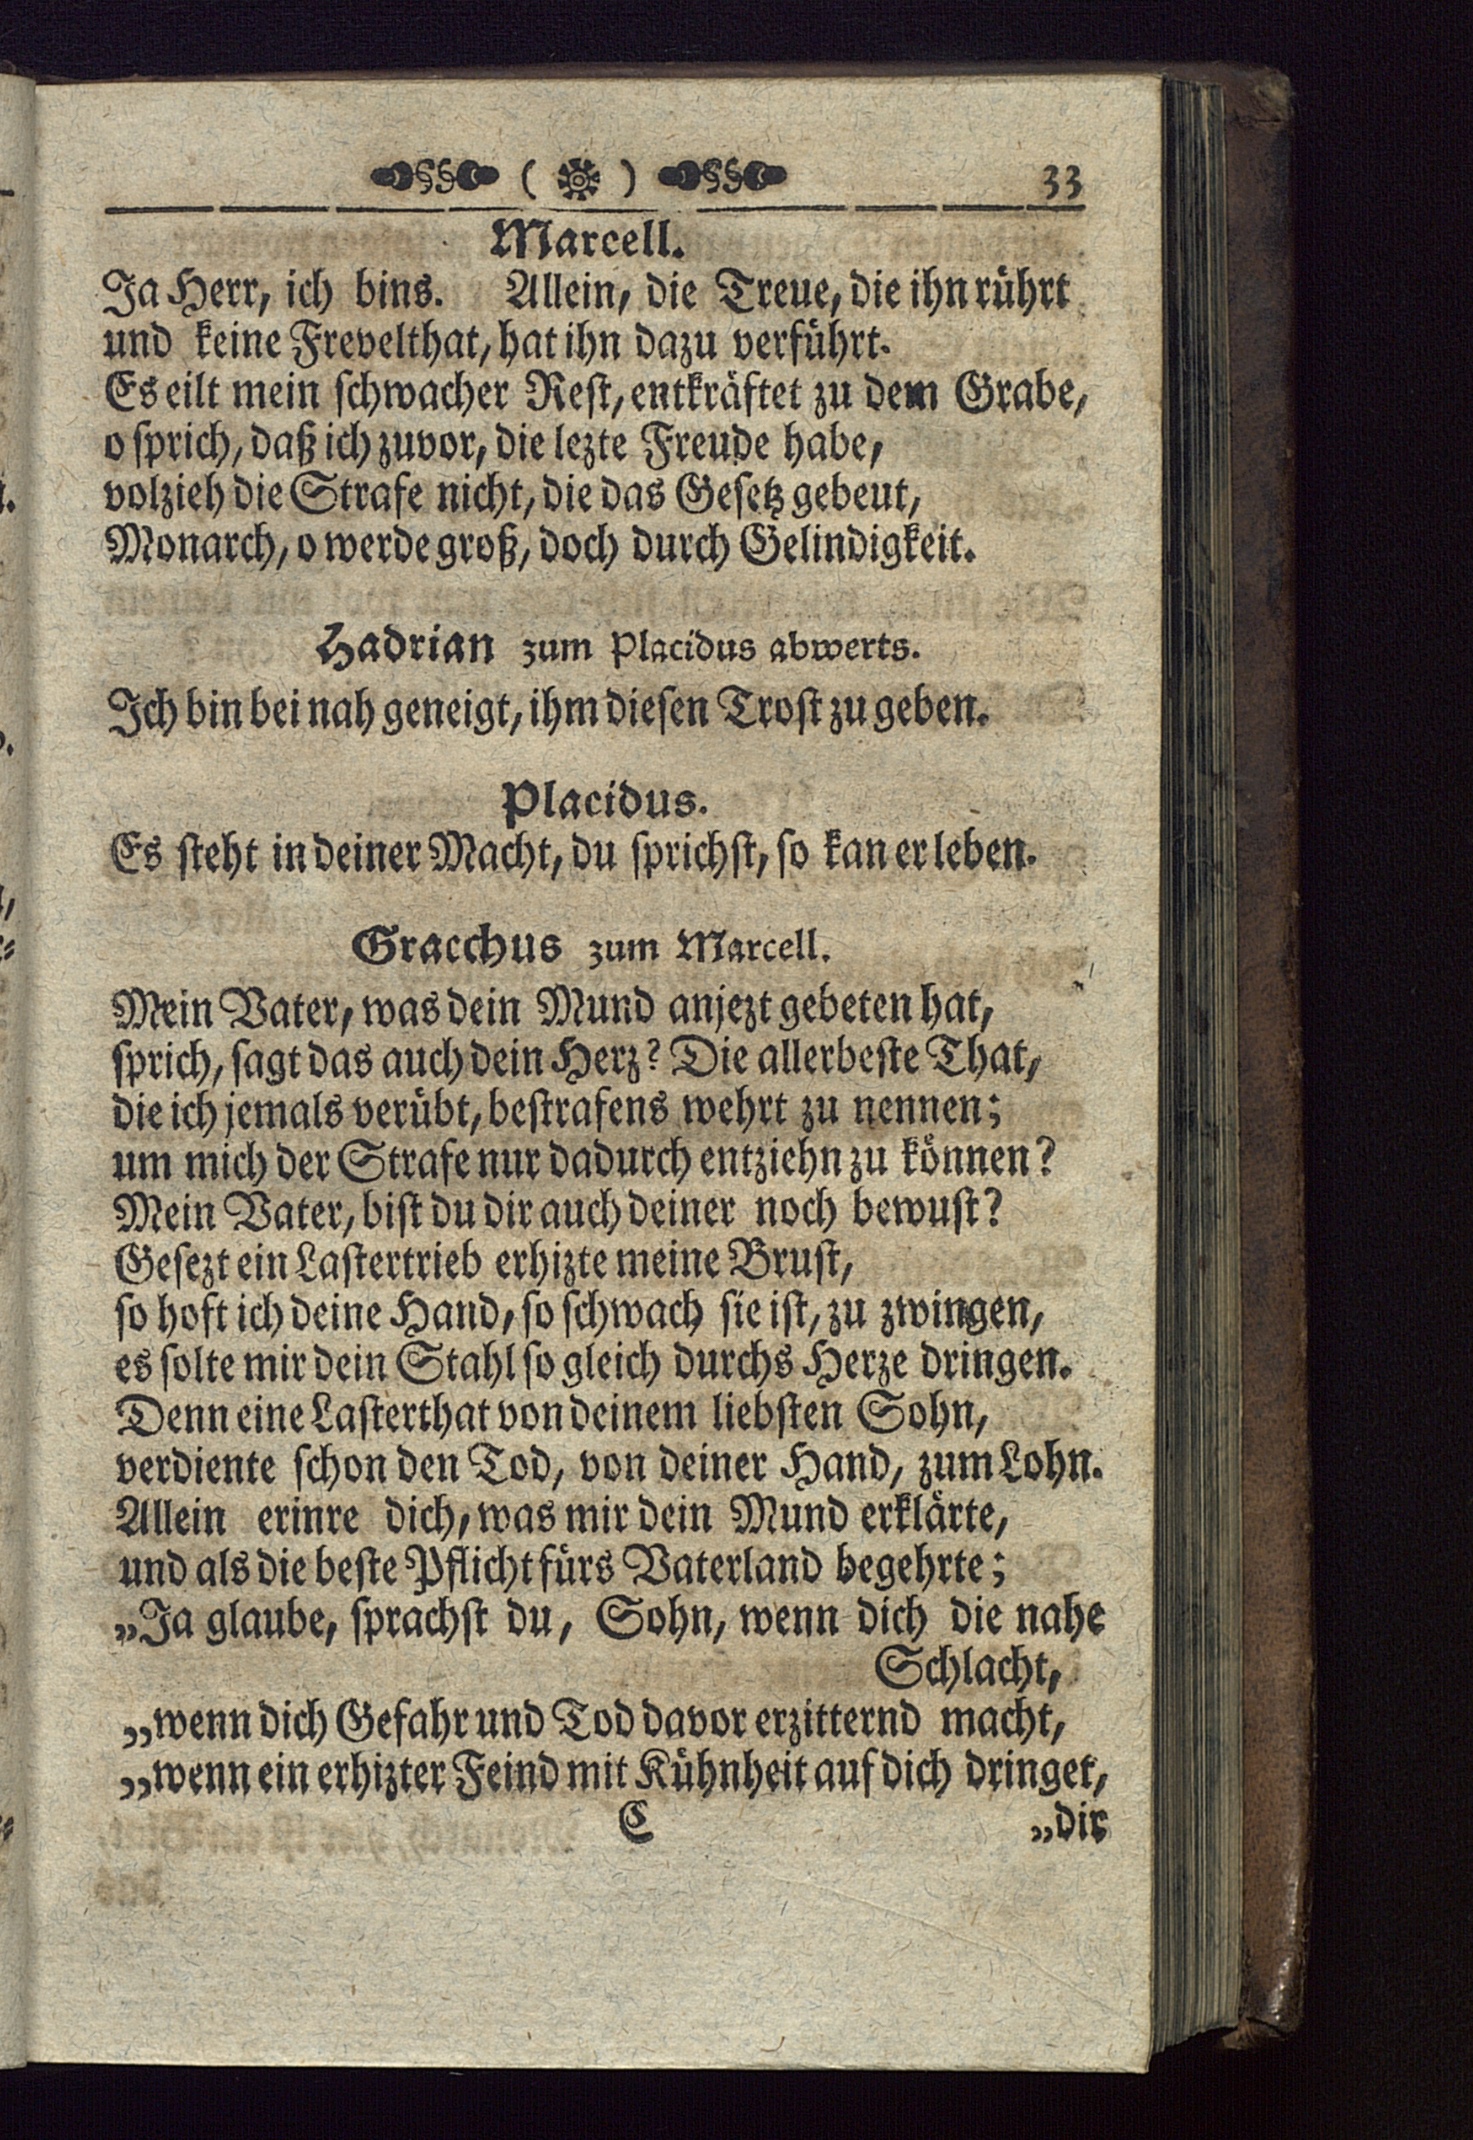 ( ) 33
Marcell.
Ja Herr, ich bins. Allein, die Treue, die ihn rührt
und keine Frevelthat, hat ihn dazu verführt.
Es eilt mein schwacher Rest, entkräftet zu dem Grabe,
o sprich, daß ich zuvor, die lezte Freude habe,
volzieh die Strafe nicht, die das Gesetz gebeut,
Monarch, o werde groß, doch durch Gelindigkeit.
Hadrian zum Placidus abwerts.
Ich bin bei nah geneigt, ihm diesen Trost zu geben.
Placidus.
Es steht in deiner Macht, du sprichst, so kan er leben.
Gracchus zum Marcell.
Mein Vater, was dein Mund anjezt gebeten hat,
sprich, sagt das auch dein Herz? Die allerbeste That,
die ich jemals verübt, bestrafens wehrt zu nennen;
um mich der Strafe nur dadurch entziehn zu können?
Mein Vater, bist du dir auch deiner noch bewust?
Gesezt ein Lastertrieb erhizte meine Brust,
so hoft ich deine Hand, so schwach sie ist, zu zwingen,
es solte mir dein Stahl so gleich durchs Herze dringen.
Denn eine Lasterthat von deinem liebsten Sohn,
verdiente schon den Tod, von deiner Hand, zum Lohn.
Allein erinre dich, was mir dein Mund erklärte,
und als die beste Pflicht fürs Vaterland begehrte;
„Ja glaube, sprachst du, Sohn, wenn dich die nahe
Schlacht,
„wenn dich Gefahr und Tod davor erzitternd macht,
„wenn ein erhizter Feind mit Kühnheit auf dich dringet,
C „dir